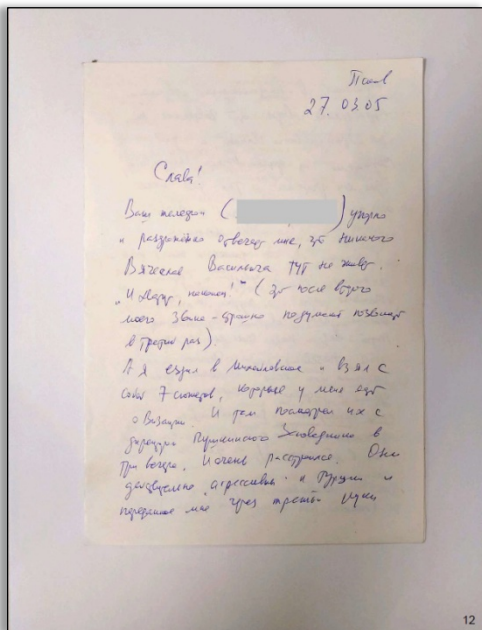 Псков
27.03.05
Слава!
Ваш телефон ( ) упорно
и раздраженно отвечает мне, что никакого
Вячеслава Васильевича тут не живет.
(это после второго
моего звонка – страшно подумать позвонить
в третий раз).
А я ездил в Михайловское и взял с
собой 7 сюжетов, которые у меня есть
о Византии. И там посмотрел их с
директором Пушкинского Заповедника в
три вечера. И очень расстроился. Они
действительно агрессивны и
переданное мне через третьи руки
12